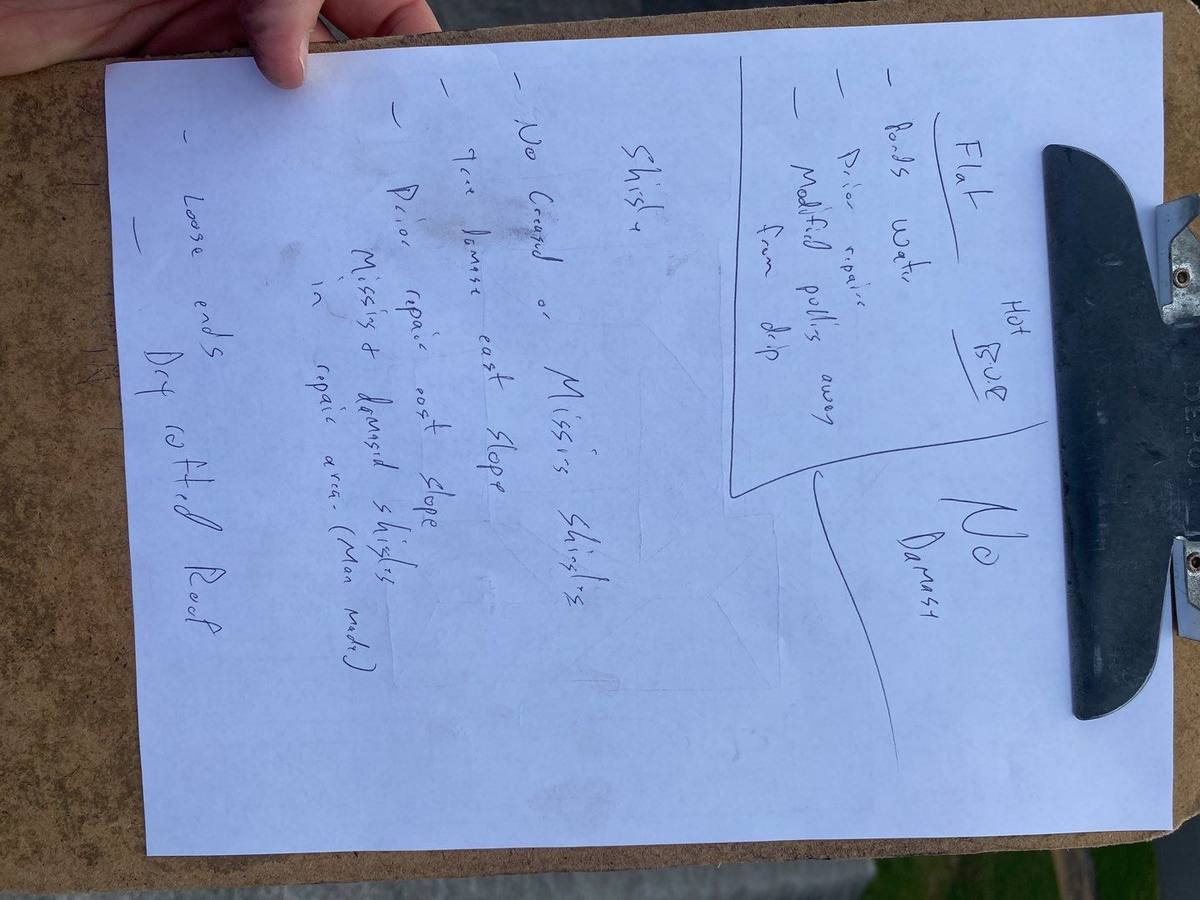 Hot
Flat B.U.R
- Ponds water
- Prior repairs
- Modified pulling away
from drip
No
Damage
Shingle
- No Creased or Missing Shingles
- Tree damage east slope
- Prior repair east slope
Missing + damaged shingles
in repair area - (Man made)
- Loose ends
- Dry rotted Roof